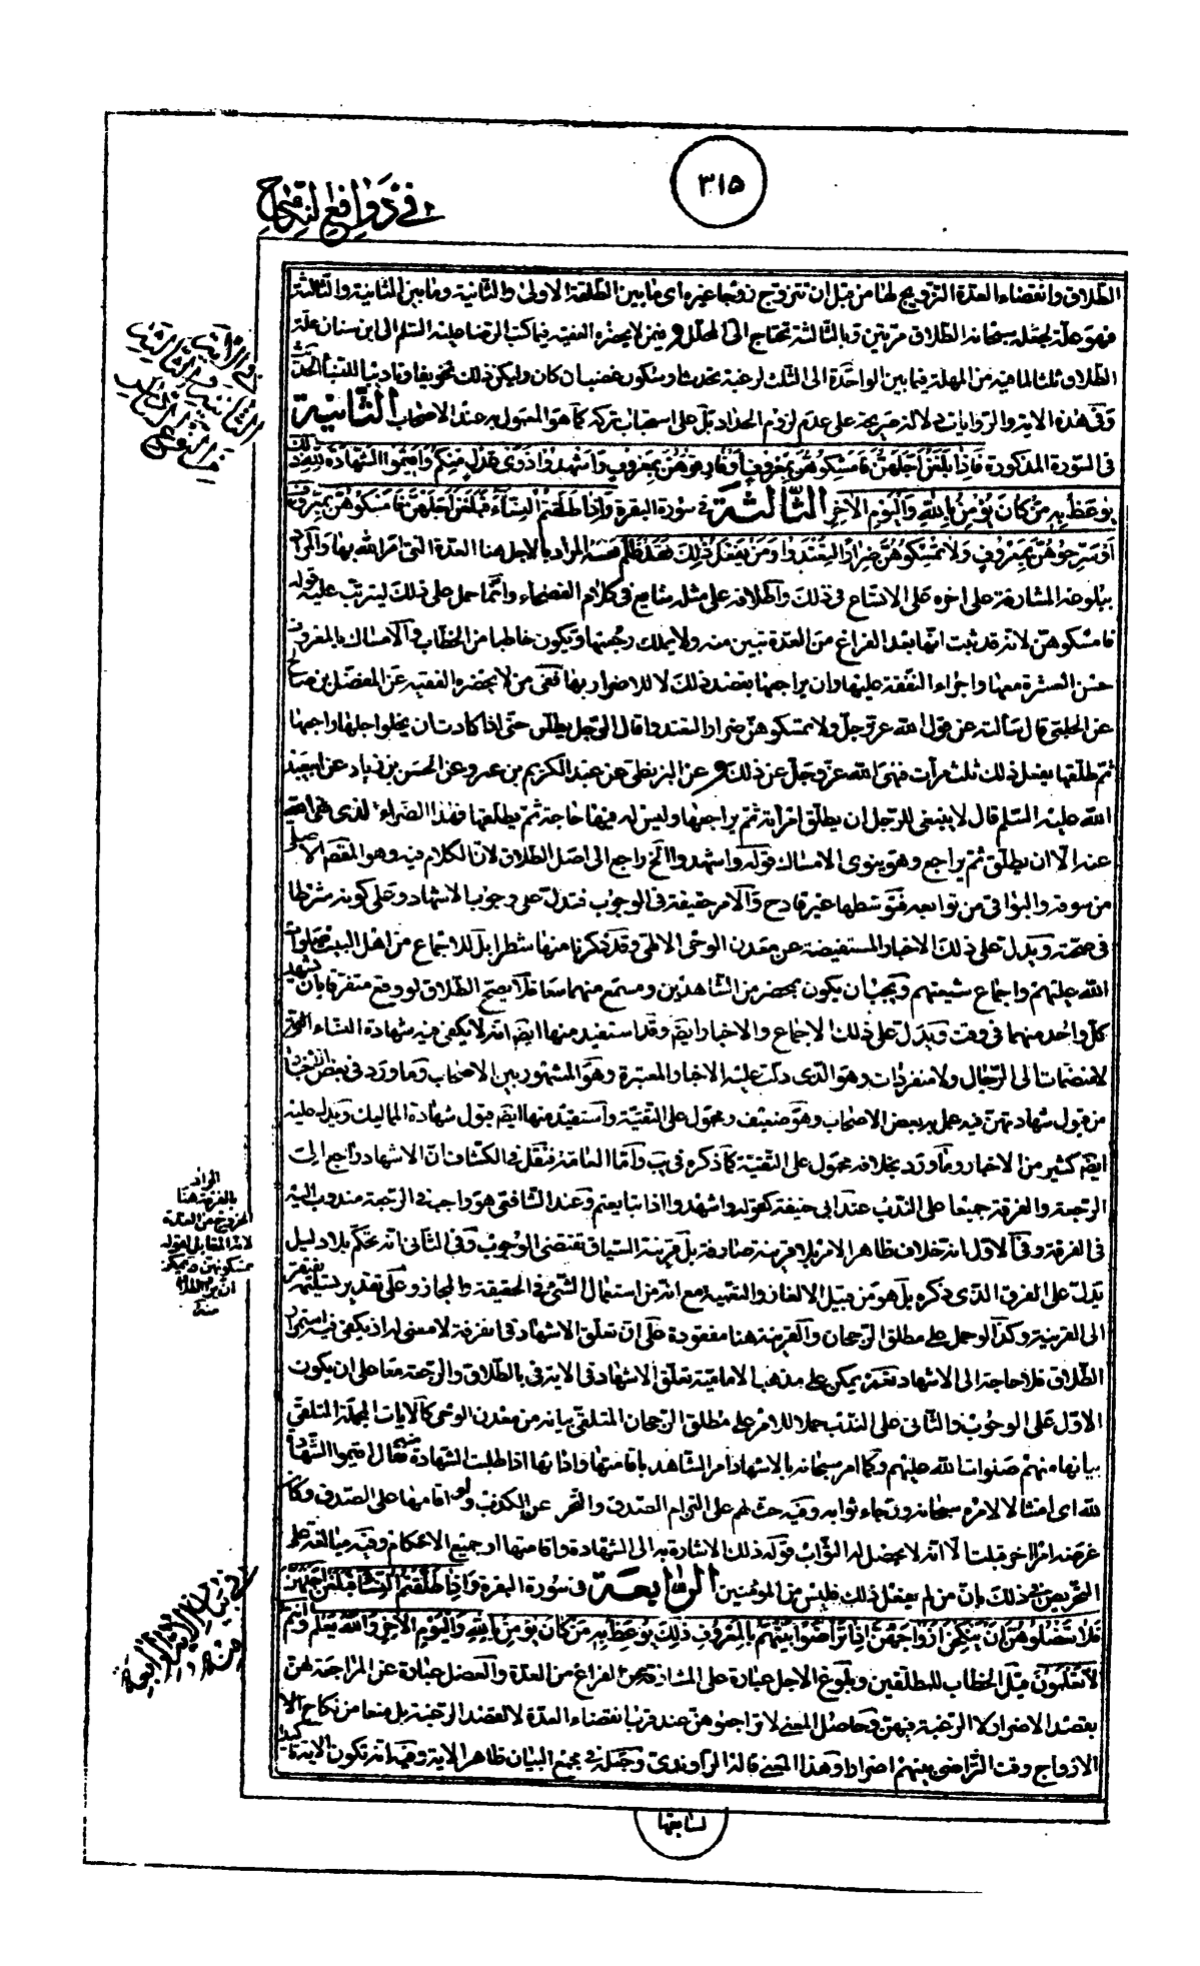 ٣١٥
في دوافع النكاح
الطلاق وانقضاء العدة التزويج لها من قبل ان تتزوج زوجا غيره اى ما بين الطلقة الاولى والثانية وما بين الثانية والثالثة
فهو علة لجعله سبحانه الطلاق مرتين وبالثالثة تحتاج الى المحلل وفيمن لا يحضره الفقيه فيما كتب الرضا عليه السلم الى ابن سنان علة
الطلاق ثلثا لما فيه من المهلة فيما بين الواحدة الى الثلث لرغبة تحدث او سكون غضب ان كان وليكن ذلك تخويفا وتاديبا للنساء
وفى هذه الاية والروايات دلالة صريحة على عدم لزوم الحداد بل على استحباب تركه كما هو المعمول به عند الاصحاب الثانية
فى السورة المذكورة فَاِذا بَلَغْنَ اَجَلَهُنَّ فَاَمْسِكُوهُنَّ بِمَعْرُوفٍ اَوْ فارِقُوهُنَّ بِمَعْرُوفٍ وَاَشْهِدُوا ذَوَىْ عَدْلٍ مِنْكُمْ وَاَقِيمُوا الشَّهادَةَ لِلّهِ ذلِكُمْ
يُوعَظُ بِهِ مَنْ كانَ يُؤْمِنُ بِاللهِ وَالْيَوْمِ الاخِرِ الثالثة فى سورة البقرة وَاِذا طَلَّقْتُمُ النِّساءَ فَبَلَغْنَ اَجَلَهُنَّ فَاَمْسِكُوهُنَّ بِمَعْرُوفٍ
اَوْ سَرِّحُوهُنَّ بِمَعْرُوفٍ وَلا تُمْسِكُوهُنَّ ضِرارًا لِتَعْتَدُوا وَمَنْ يَفْعَلْ ذلِكَ فَقَدْ ظَلَمَ نَفْسَهُ المراد بالاجل هنا العدة التى امر الله بها والمراد
ببلوغه المشارفة على اخره على الاتساع فى ذلك واطلاقه على مثله شايع فى كلام الفصحاء وانما حمل على ذلك ليترتب عليه قوله
فامسكوهن لانه قد ثبت انها بعد الفراغ من العدة تبين منه ولا يملك رجعتها ويكون خاطبا من الخطاب والامساك بالمعروف
حسن العشرة معها واجراء النفقة عليها وان يراجعها بقصد ذلك لا للاضرار بها ففى من لا يحضره الفقيه عن المفضل بن صالح
عن الحلبى قال سالته عن قول الله عز وجل ولا تمسكوهن ضرارا لتعتدوا قال الرجل يطلق حتى اذا كادت ان يخلوا اجلها راجعها
ثم طلقها يفعل ذلك ثلث مرات فنهى الله عز وجل عن ذلك وعن البزنطى عن عبد الكريم بن عمرو عن الحسن بن زياد عن ابيعبد
الله عليه السلم قال لا ينبغى للرجل ان يطلق امراته ثم يراجعها وليس له فيها حاجة ثم يطلقها فهذا الضرار الذى نهى الله
عنه الا ان يطلق ثم يراجع وهو ينوى الامساك قوله واشهدوا الخ راجع الى اصل الطلاق لان الكلام فيه وهو المقصد الاصلى
من سوقه والبواقى من توابعه فتوسطها غير قادح والامر حقيقة فى الوجوب فتدل على وجوب الاشهاد وعلى كونه شرطا
فى صحته ويدل على ذلك الاخبار المستفيضة عن معدن الوحى الالهى وقد ذكرنا منها شطرا بل للاجماع من اهل البيت صلوات
الله عليهم واجماع شيعتهم ويجب ان يكون بمحضر من الشاهدين ومسمع منهما معا فلا يصح الطلاق لو وقع متفرقا بان يشهد
كل واحد منهما فى وقت ويدل على ذلك الاجماع والاخبار ايضا وقد استفيد منها ايضا انه لا يكفى فيه شهادة النساء
لا منضمات الى الرجال ولا منفردات وهو الذى دلت عليه الاخبار المعتبرة وهو المشهور بين الاصحاب وما ورد فى بعض الاخبار
من قبول شهادتهن فيه عمل به بعض الاصحاب وهو ضعيف ومحمول على التقية واستفيد منها ايضا قبول شهادة المماليك ويدل عليه
ايضا كثير من الاخبار وما ورد بخلافه محمول على التقية كما ذكره فى يب واما العامة فنقل فى الكشاف ان الاشهاد راجع الى
الرجعة والفرقة جميعا على الندب عند ابى حنيفة كقوله واشهدوا اذا تبايعتم وعند الشافعى هو واجب فى الرجعة مندوب اليه
فى الفرقة وفى الاول انه خلاف ظاهر الامر بلا قرينة صارفة بل قرينة السياق تقتضى الوجوب وفى الثانى انه تحكم بلا دليل
يدل على الفرق الذى ذكره بل هو من قبيل الالغاز والتعمية مع انه من استعمال الشئ فى الحقيقة والمجاز وعلى تقدير تسليمه يفتقر
الى القرينة وكذا لو حمل على مطلق الرجحان والقرينة هنا مفقودة على ان تعلق الاشهاد فى الفرقة لا معنى له اذ يكفى فيه استمرار
الطلاق فلا حاجة الى الاشهاد نعم يمكن على مذهب الامامية تعلق الاشهاد فى الاية فى بالطلاق والرجعة معا على ان يكون
الاول على الوجوب والثانى على الندب حملا للامر على مطلق الرجحان المتلقى بيانه من معدن الوحى كالايات المجملة المتلقى
بيانها منهم صلوات الله عليهم وكما امر سبحانه بالاشهاد امر الشاهد باقامتها وادائها اذا طلبت الشهادة منهم فقال اقيموا الشهادة
لله اى امتثالا لامره سبحانه ورجاء ثوابه وفيه حث لهم على التزام الصدق والتحرز عن الكذب ولو اقامها على الصدق وكان
غرضه امرا اخر قبلت الا انه لا يحصل له الثواب قوله ذلك الاشارة به الى الشهادة واقامتها او جميع الاحكام وفيه مبالغة على
التحريص على ذلك بان من لم يفعل ذلك فليس من المؤمنين الرابعة فى سورة البقرة وَاِذا طَلَّقْتُمُ النِّساءَ فَبَلَغْنَ اَجَلَهُنَّ
فَلا تَعْضُلُوهُنَّ اَنْ يَنْكِحْنَ اَزْواجَهُنَّ اِذا تَراضَوْا بَيْنَهُمْ بِالْمَعْرُوفِ ذلِكَ يُوعَظُ بِهِ مَنْ كانَ يُؤْمِنُ بِاللهِ وَالْيَوْمِ الاخِرِ وَاللهُ يَعْلَمُ وَاَنْتُمْ
لا تَعْلَمُونَ قيل الخطاب للمطلقين وبلوغ الاجل عبارة على المشارفة على الفراغ من العدة والعضل عبارة عن المراجعة لهن
بقصد الاضرار لا الرغبة فيهن وحاصل المعنى لا تراجعوهن عند قرب انقضاء العدة لا لقصد الرغبة بل منعا من نكاح
الازواج وقت التراضى بينهم اضرارا وهذا المعنى قاله الراوندى وجعله فى مجمع البيان ظاهر الاية وفيه انه تكون الاية تاكيدا
المراد
بالفرقة هنا
الخروج من العدة
لانه المقابل لقوله
امسكوهن ويمكن
ان يراد الطلاق
منه
لسابقتها